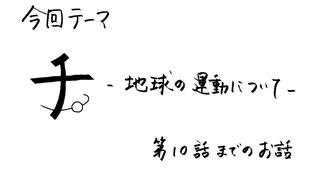 今回テーマ
チ
- 地球の運動について -
第10話までのお話